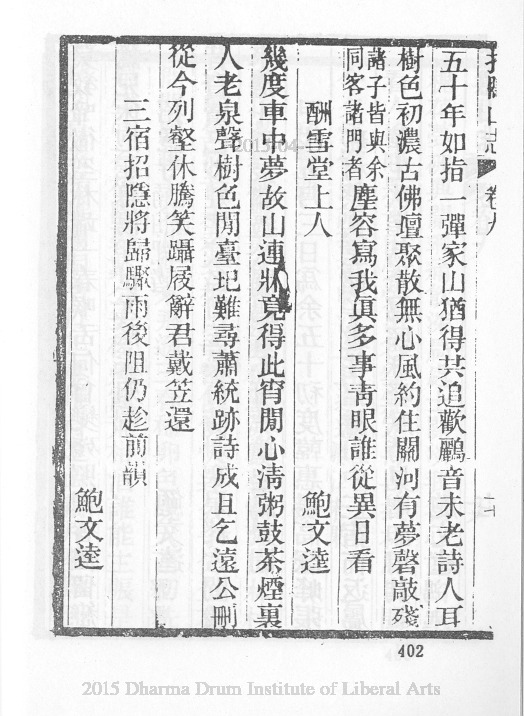 招隱山志 卷九
五十年如指一彈家山猶得共追歡鸝音未老詩人耳
樹色初濃古佛壇聚散無心風約住關河有夢磬敲殘
諸子皆與余
同客諸門者
塵容寫我眞多事靑眼誰從異日看
鮑文逵
酬雪堂上人
幾度車中夢故山連牀竟得此宵閒心淸粥鼓茶煙裏
人老泉聲樹色間臺圮難尋蕭統跡詩成且乞遠公刪
從今列壑休騰笑躡屐辭君戴笠還
三宿招隱將歸驟雨後阻仍趁前韻
鮑文逵
402
2015-04-
2015 Dharma Drum Institute of Liberal Arts